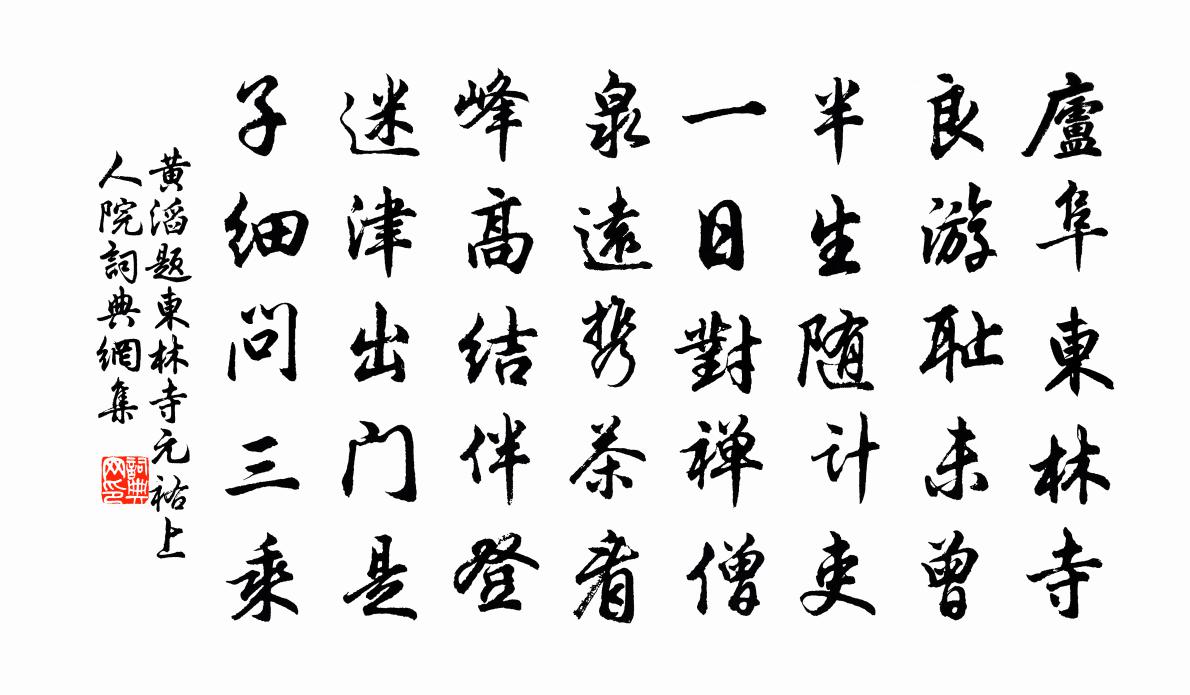 廬阜東林寺
良游耻未曾
半生随计吏
一日對禅僧
泉遠携茶看
峰高结伴登
迷津出门是
子细问三乘
黄滔题東林寺元祐上
人院詞典網集
詞典
网印